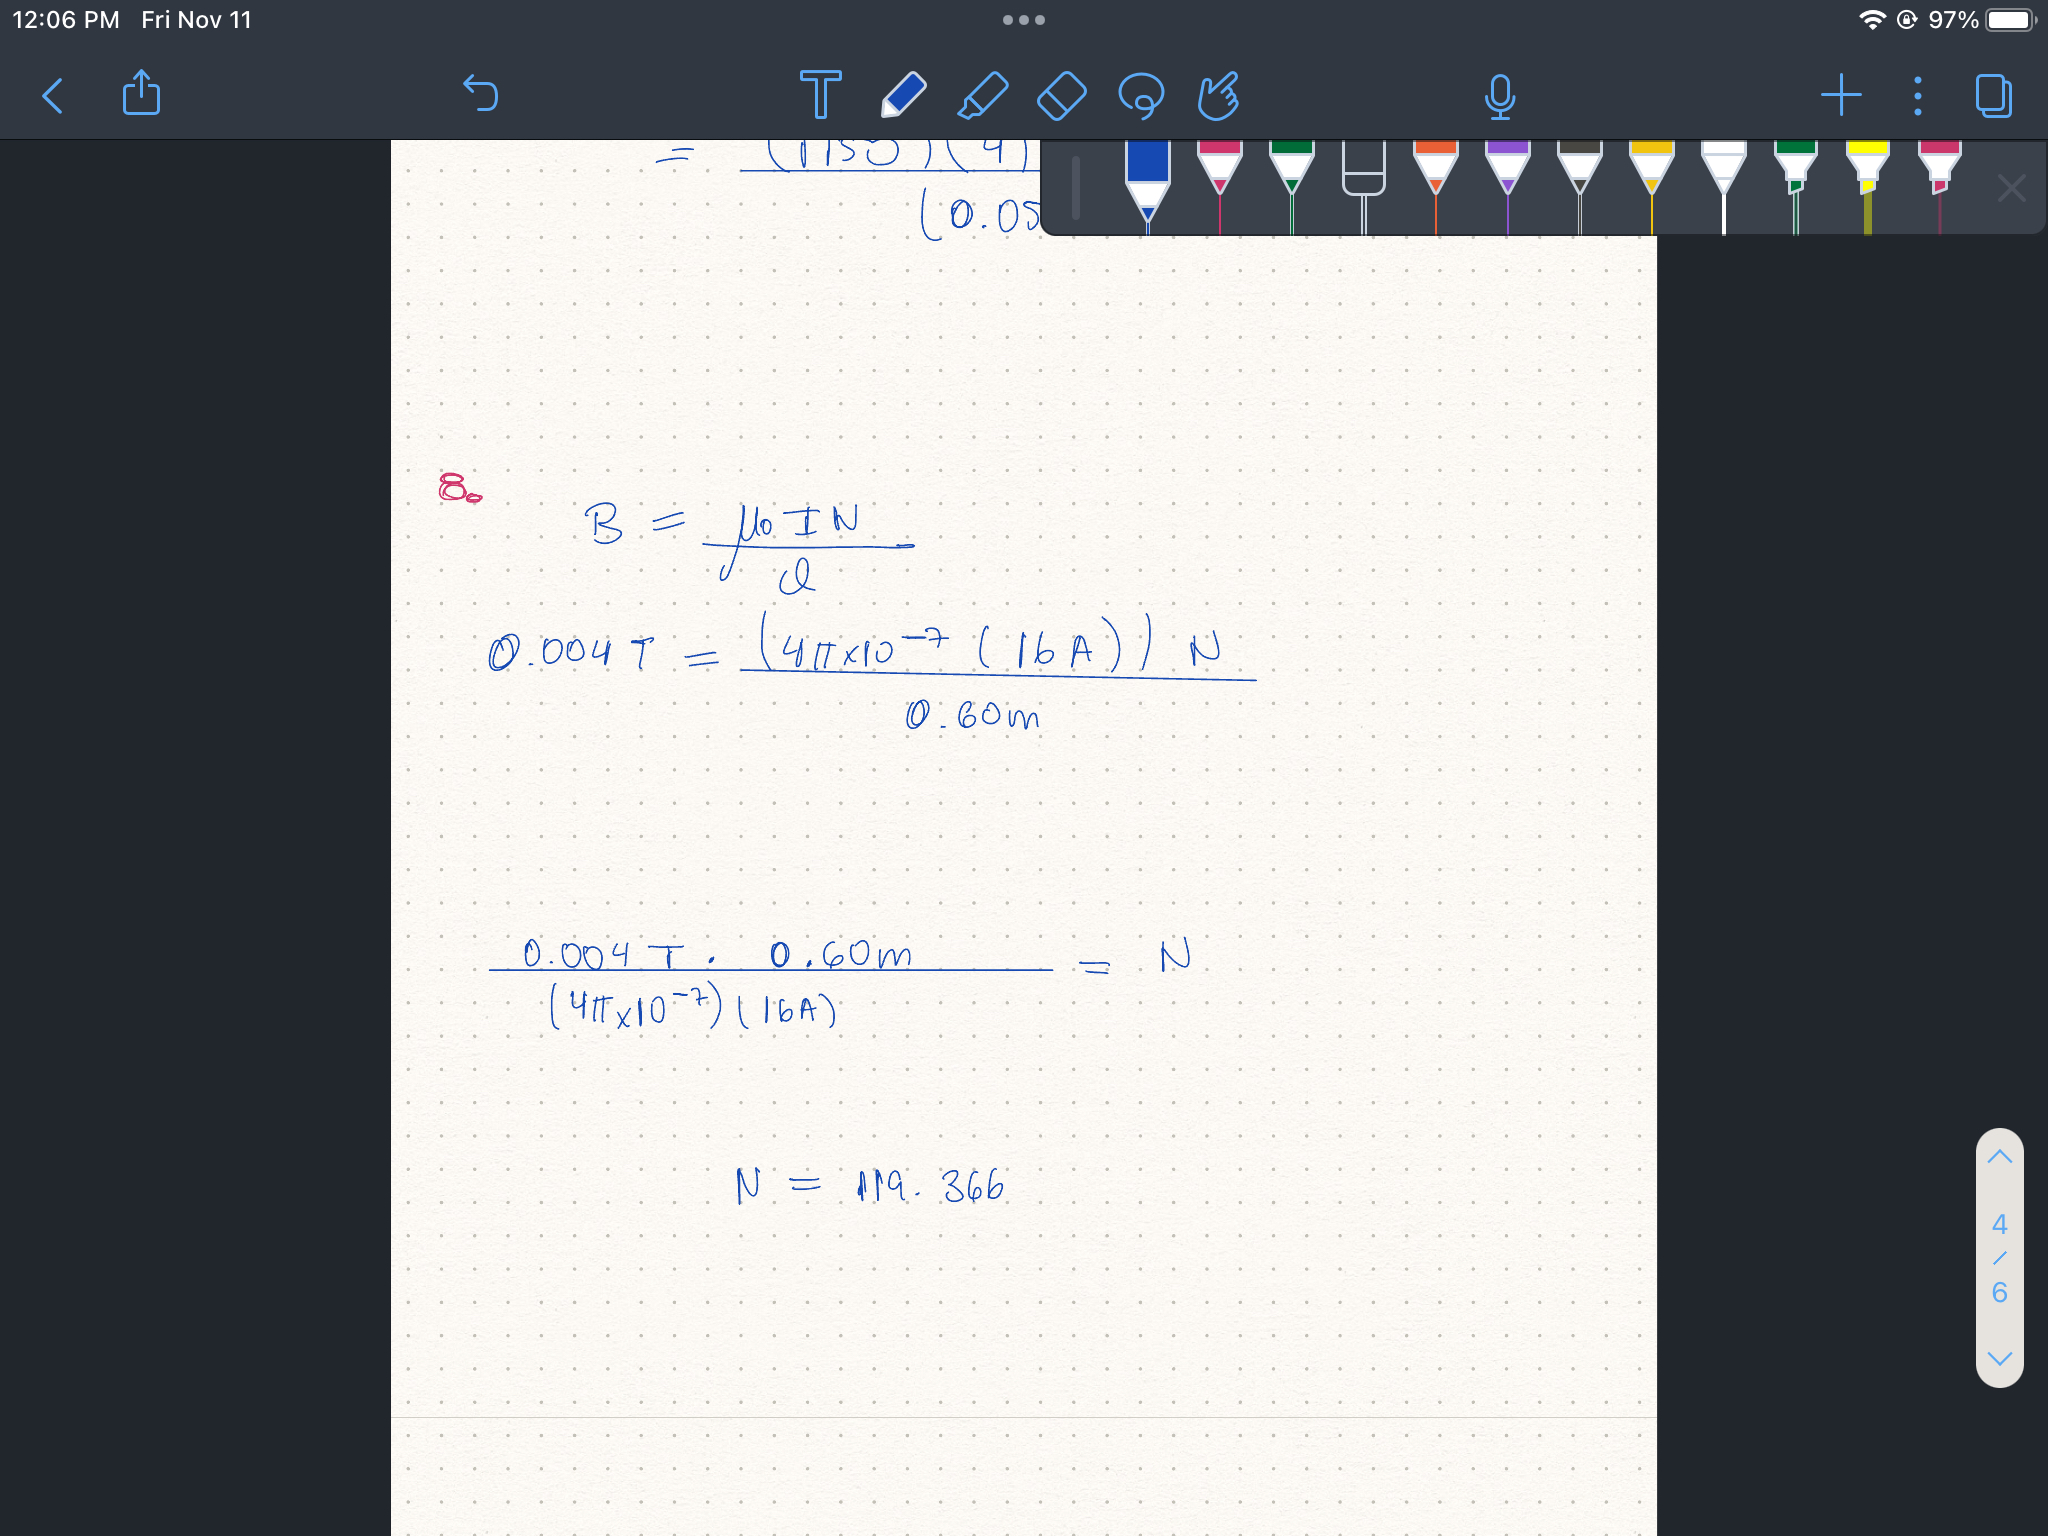 12:06 PM Fri Nov 11 97%
T
= (1150)(4)
(0.05
8.
B = μ0 I N
d
0.004 T = (4π×10⁻⁷ (16A)) N
0.60m
0.004 T . 0.60m = N
(4π×10⁻⁷)(16A)
N = 119.366
4
/
6